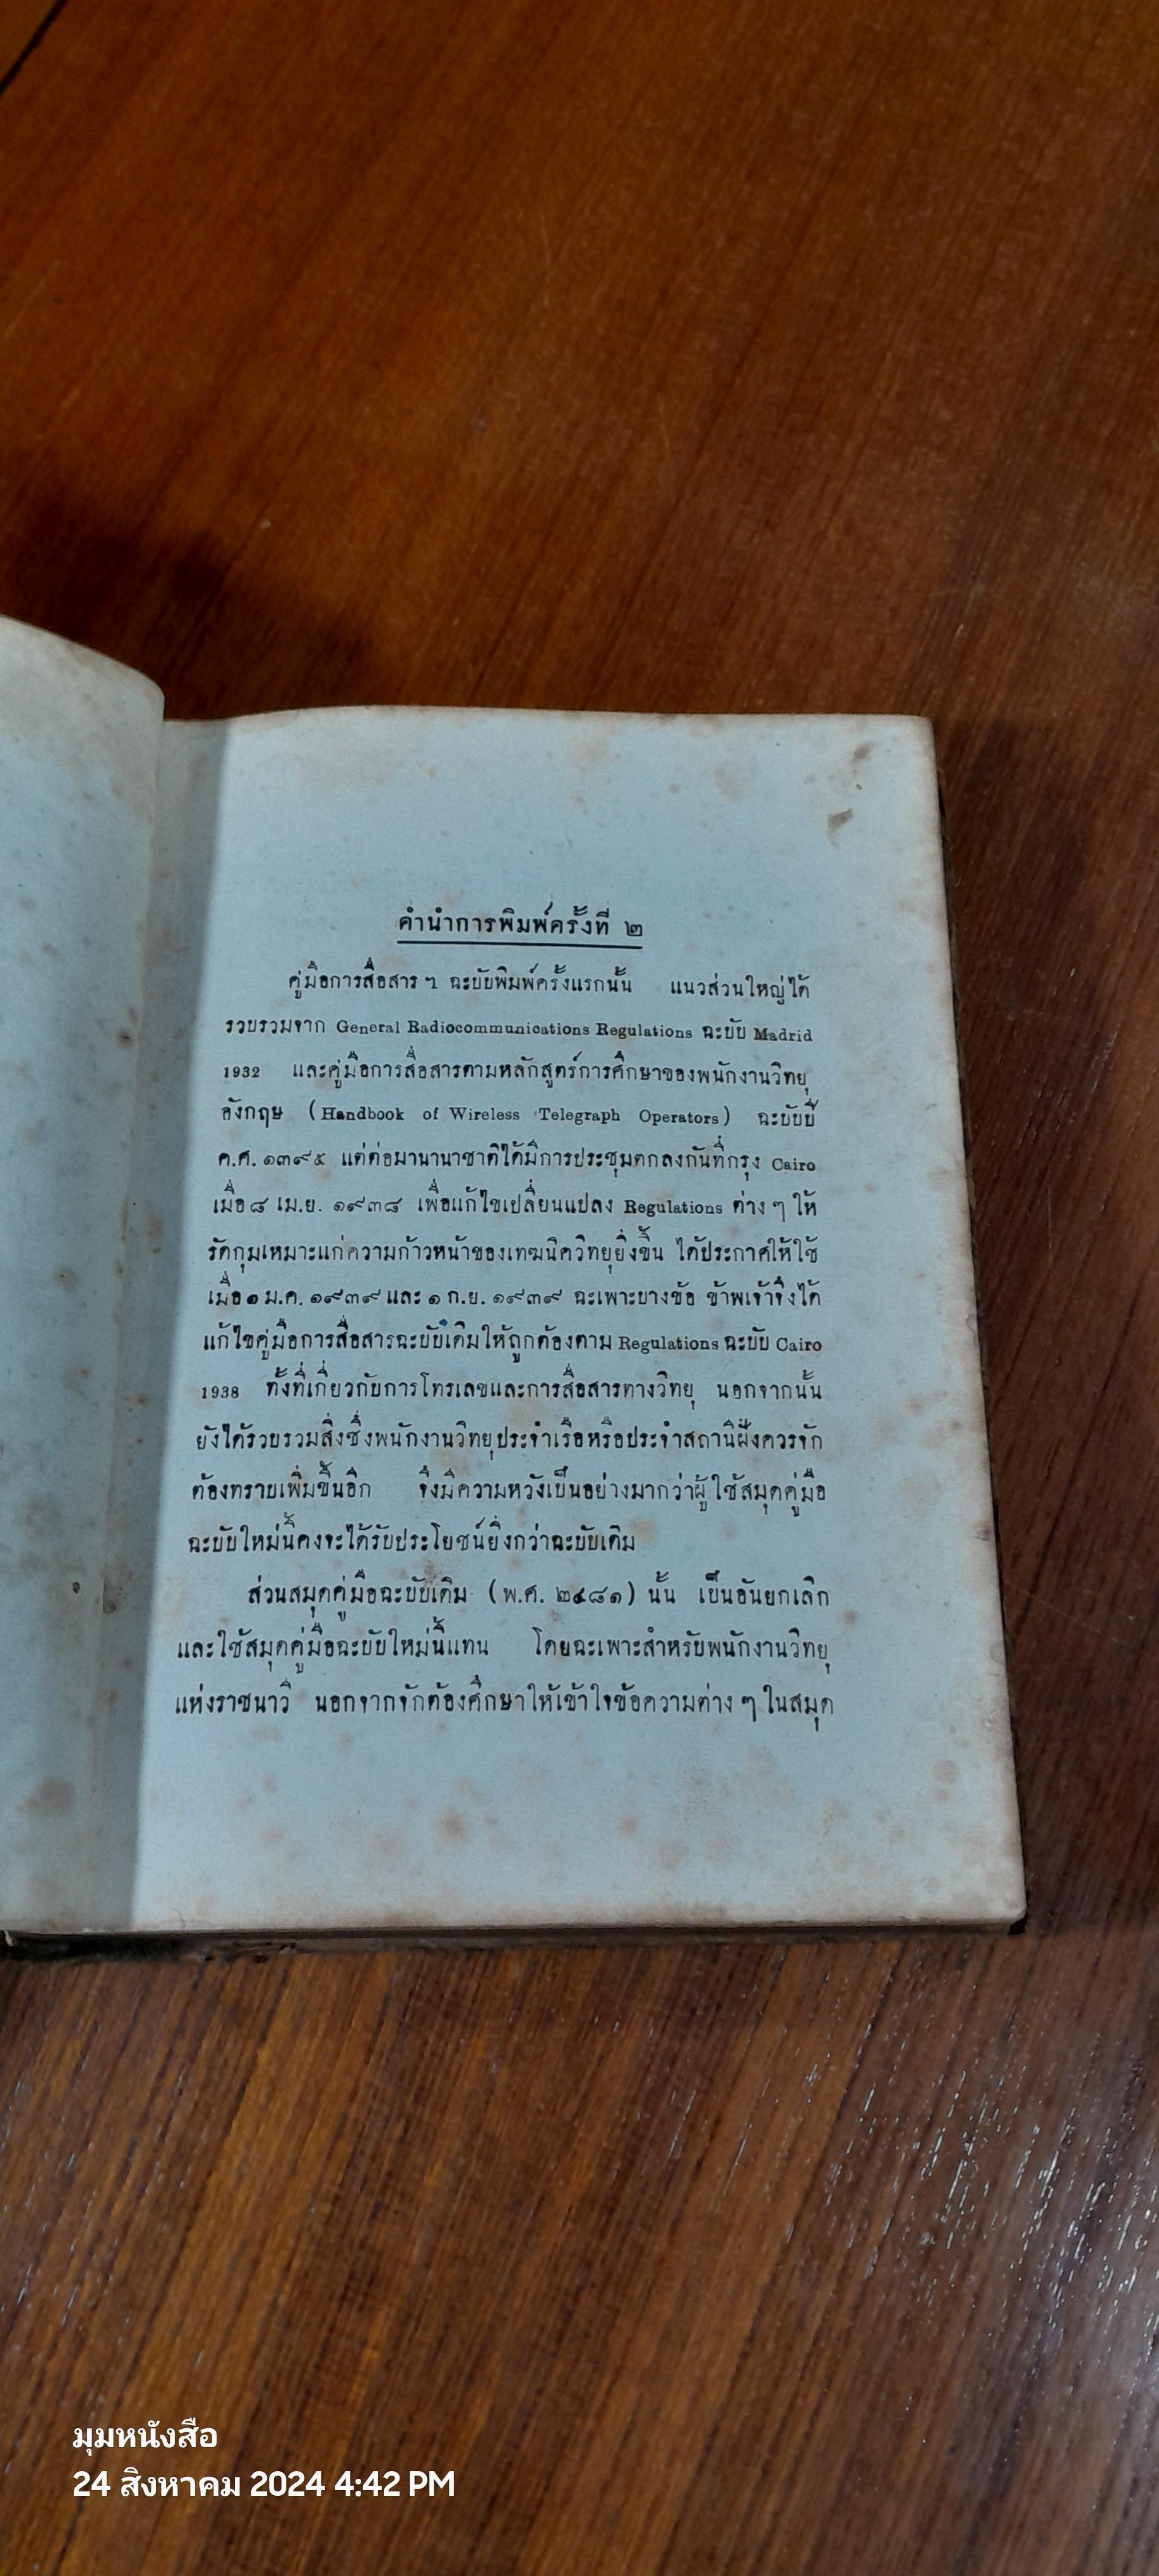 คำนำการพิมพ์ครั้งที่ ๒
คู่มือการสื่อสาร ฯ ฉะบับพิมพ์ครั้งแรกนั้น แนวส่วนใหญ่ได้
รวบรวมจาก General Radiocommunications Regulations ฉะบับ Madrid
1932 และคู่มือการสื่อสารตามหลักสูตร์การศึกษาของพนักงานวิทยุ
อังกฤษ (Handbook of Wireless Telegraph Operators) ฉะบับปี
ค.ศ. ๑๓๙๕ แต่ต่อมานานาชาติได้มีการประชุมตกลงกันที่กรุง Cairo
เมื่อ ๘ เม.ย. ๑๙๓๘ เพื่อแก้ไขเปลี่ยนแปลง Regulations ต่าง ๆ ให้
รัดกุมเหมาะแก่ความก้าวหน้าของเทฆนิควิทยุยิ่งขึ้น ได้ประกาศให้ใช้
เมื่อ ๑ ม.ค. ๑๙๓๙ และ ๑ ก.ย. ๑๙๓๙ ฉะเพาะบางข้อ ข้าพเจ้าจึงได้
แก้ไขคู่มือการสื่อสารฉะบับเดิมให้ถูกต้องตาม Regulations ฉะบับ Cairo
1938 ทั้งที่เกี่ยวกับการโทรเลขและการสื่อสารทางวิทยุ นอกจากนั้น
ยังได้รวบรวมสิ่งซึ่งพนักงานวิทยุประจำเรือหรือประจำสถานีฝั่งควรจัก
ต้องทราบเพิ่มขึ้นอีก จึงมีความหวังเป็นอย่างมากว่าผู้ใช้สมุดคู่มือ
ฉะบับใหม่นี้คงจะได้รับประโยชน์ยิ่งกว่าฉะบับเดิม
ส่วนสมุดคู่มือฉะบับเดิม (พ.ศ. ๒๔๘๑) นั้น เป็นอันยกเลิก
และใช้สมุดคู่มือฉะบับใหม่นี้แทน โดยฉะเพาะสำหรับพนักงานวิทยุ
แห่งราชนาวี นอกจากจักต้องศึกษาให้เข้าใจข้อความต่าง ๆ ในสมุด
มุมหนังสือ
24 สิงหาคม 2024 4:42 PM